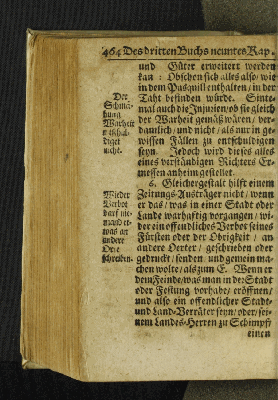 464 Des dritten Buchs neuntes Kap.
und Güter erweitert werden
kan: Obschon sich alles also/ wie
in dem Pasquill enthalten/ in der
That befinden würde. Sinte-
mal auch die Injurien/ ob sie gleich
der Warheit gemäß wären/ ver-
damlich/ und nicht/ als nur in ge-
wissen Fällen zu entschuldigen
seyn. Jedoch wird dieses alles
eines verständigen Richters Er-
messen anheim gestellet.
Der
Schmä-
hung
Warheit
entschul-
diget
nicht.
6. Gleichergestalt hilft einem
Zeitungs-Austräger nicht/ wenn
er das/ was in einer Stadt oder
Lande warhaftig vorgangen/ wi-
der ein offendliches Verbot seines
Fürsten oder der Obrigkeit/ an
andere Oerter/ geschrieben oder
gedruckt/ senden und gemein ma-
chen wolte/ als zum E. Wenn er
dem Feinde/ was man in der Stadt
oder Festung vorhabe/ eröffnen/
und also ein offentlicher Stadt-
und Land-Verräter seyn/ oder/ sei-
nem Landes-Herren zu Schimpf/
einen
Wieder
Verbot
darf nie-
mand et-
was an
andere
Orte
schreiben.